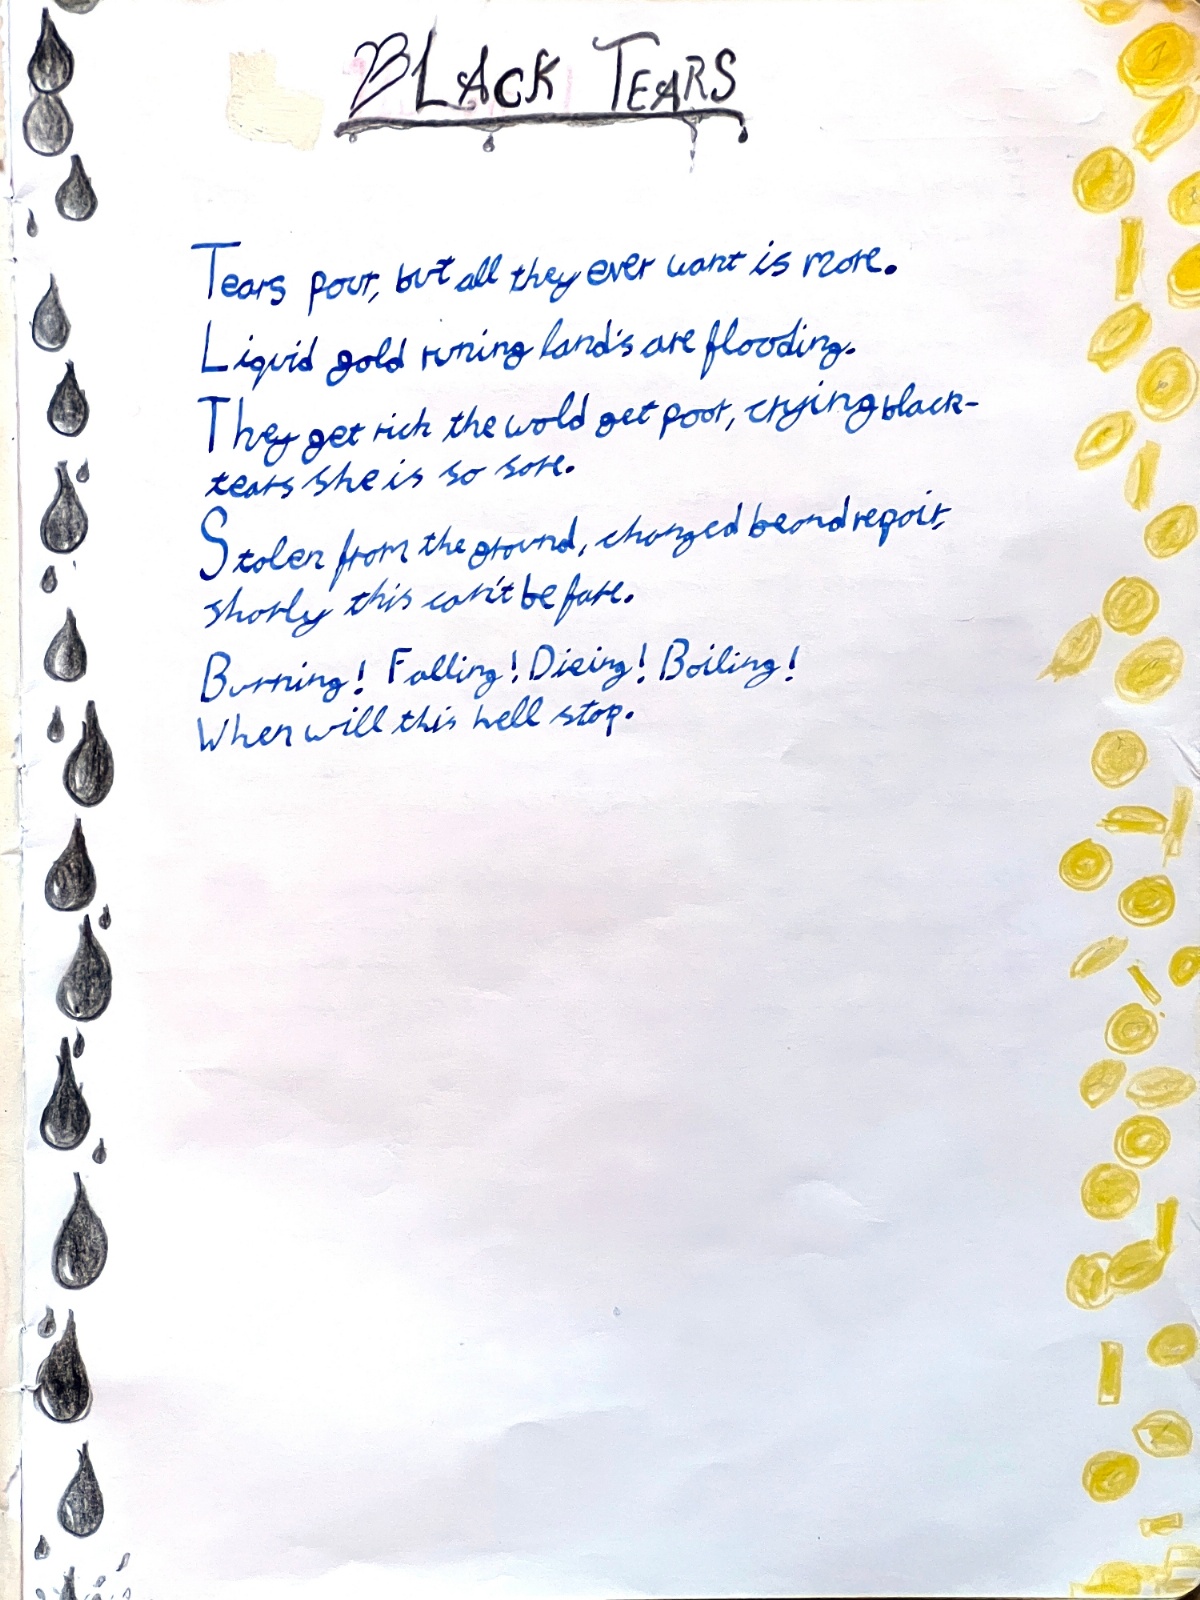 BLACK TEARS
Tears pour, but all they ever want is more.
Liquid gold runing land's are flooding.
They get rich the wold get poor, crying black-
tears she is so sore.
Stolen from the ground, changed beond repair,
shorly this can't be fare.
Burning! Falling! Dieing! Boiling!
When will this hell stop.